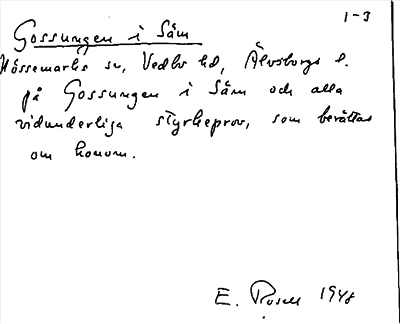 1-3
Gossungen i Såm
Nössemarks sn, Vedbo hd, Älvsborgs l.
på Gossungen i Såm och alla
vidunderliga styrkeprov, som berättas
om honom.
E. Rosell 1948